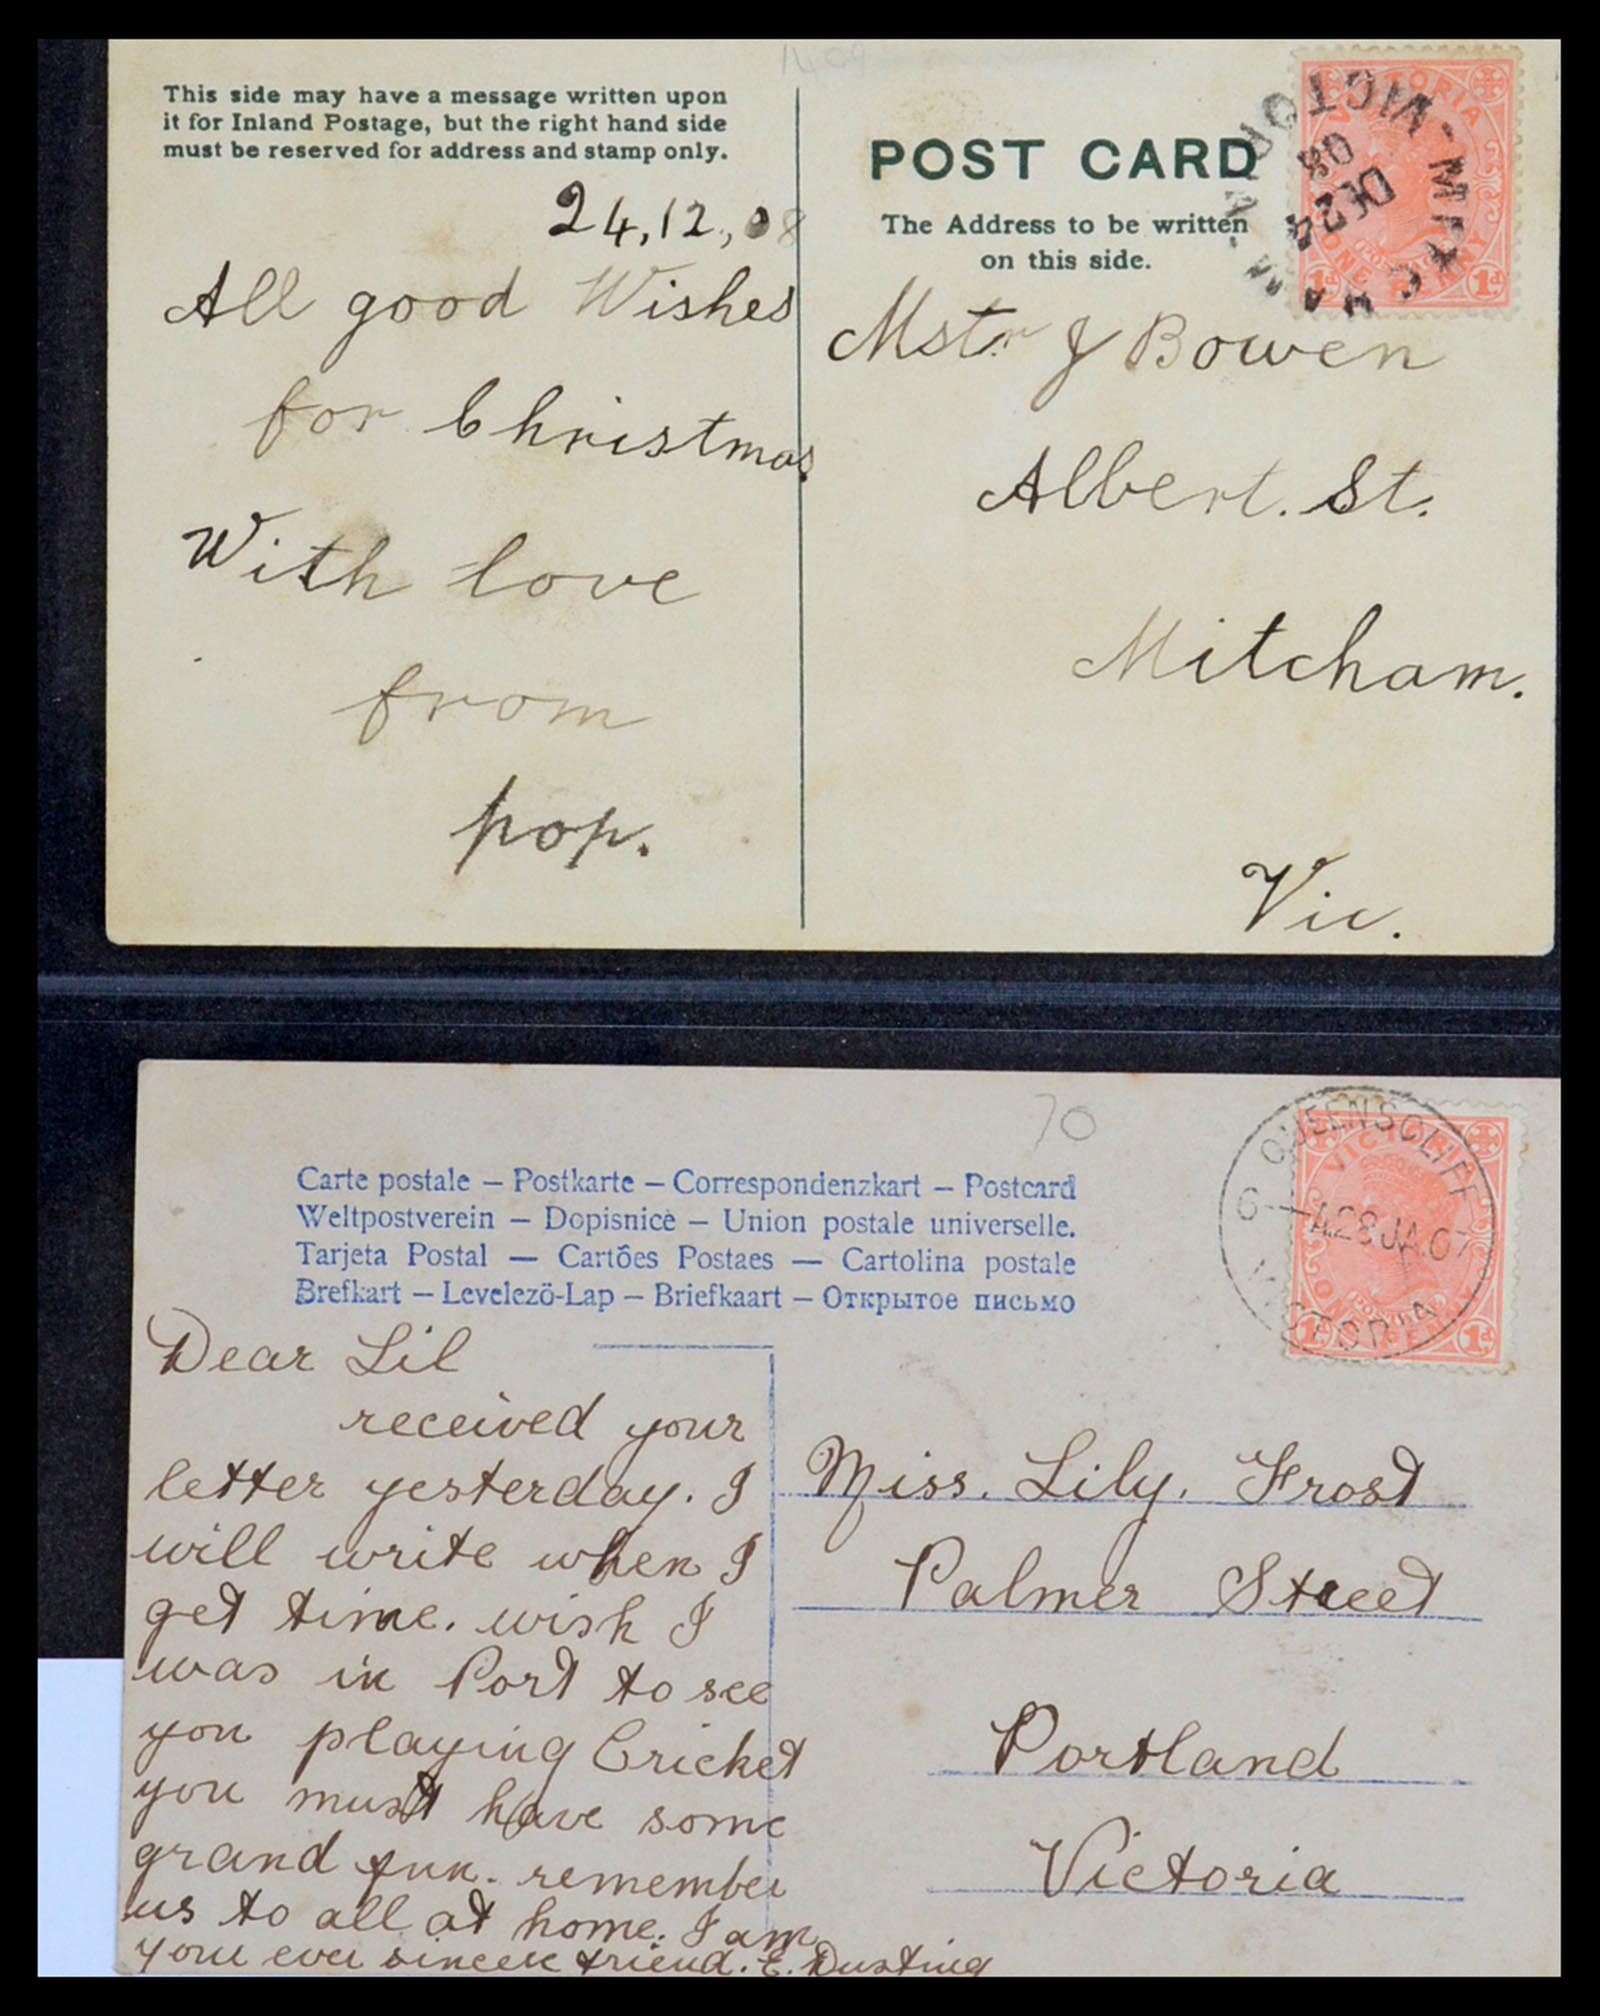 1409
This side may have a message written upon
it for Inland Postage, but the right hand side
must be reserved for address and stamp only.
24,12,08
All good Wishes
for Christmas
With love
from
pop.
POST CARD
The Address to be written
on this side.
VICTORIA
ONE PENNY
1d 1d
MITCHAM - VICTORIA
DE 24
08
Mstr J Bowen
Albert. St.
Mitcham.
Vic.
70
Carte postale – Postkarte – Correspondenzkart – Postcard
Weltpostverein – Dopisnice – Union postale universelle.
Tarjeta Postal — Cartões Postaes — Cartolina postale
Brefkart – Levelezö-Lap – Briefkaart – Открытое письмо
VICTORIA
POSTAGE
ONE PENNY
1d 1d
QUEENSCLIFF
6 — A.28 JA.07
VICTORIA
Dear Lil
received your
letter yesterday. I
will write when I
get time. wish I
was in Port to see
you playing Cricket
you must have some
grand fun. remember
us to all at home. I am
your ever sincere friend. E. Dusting
Miss. Lily. Frost
Palmer Street
Portland
Victoria